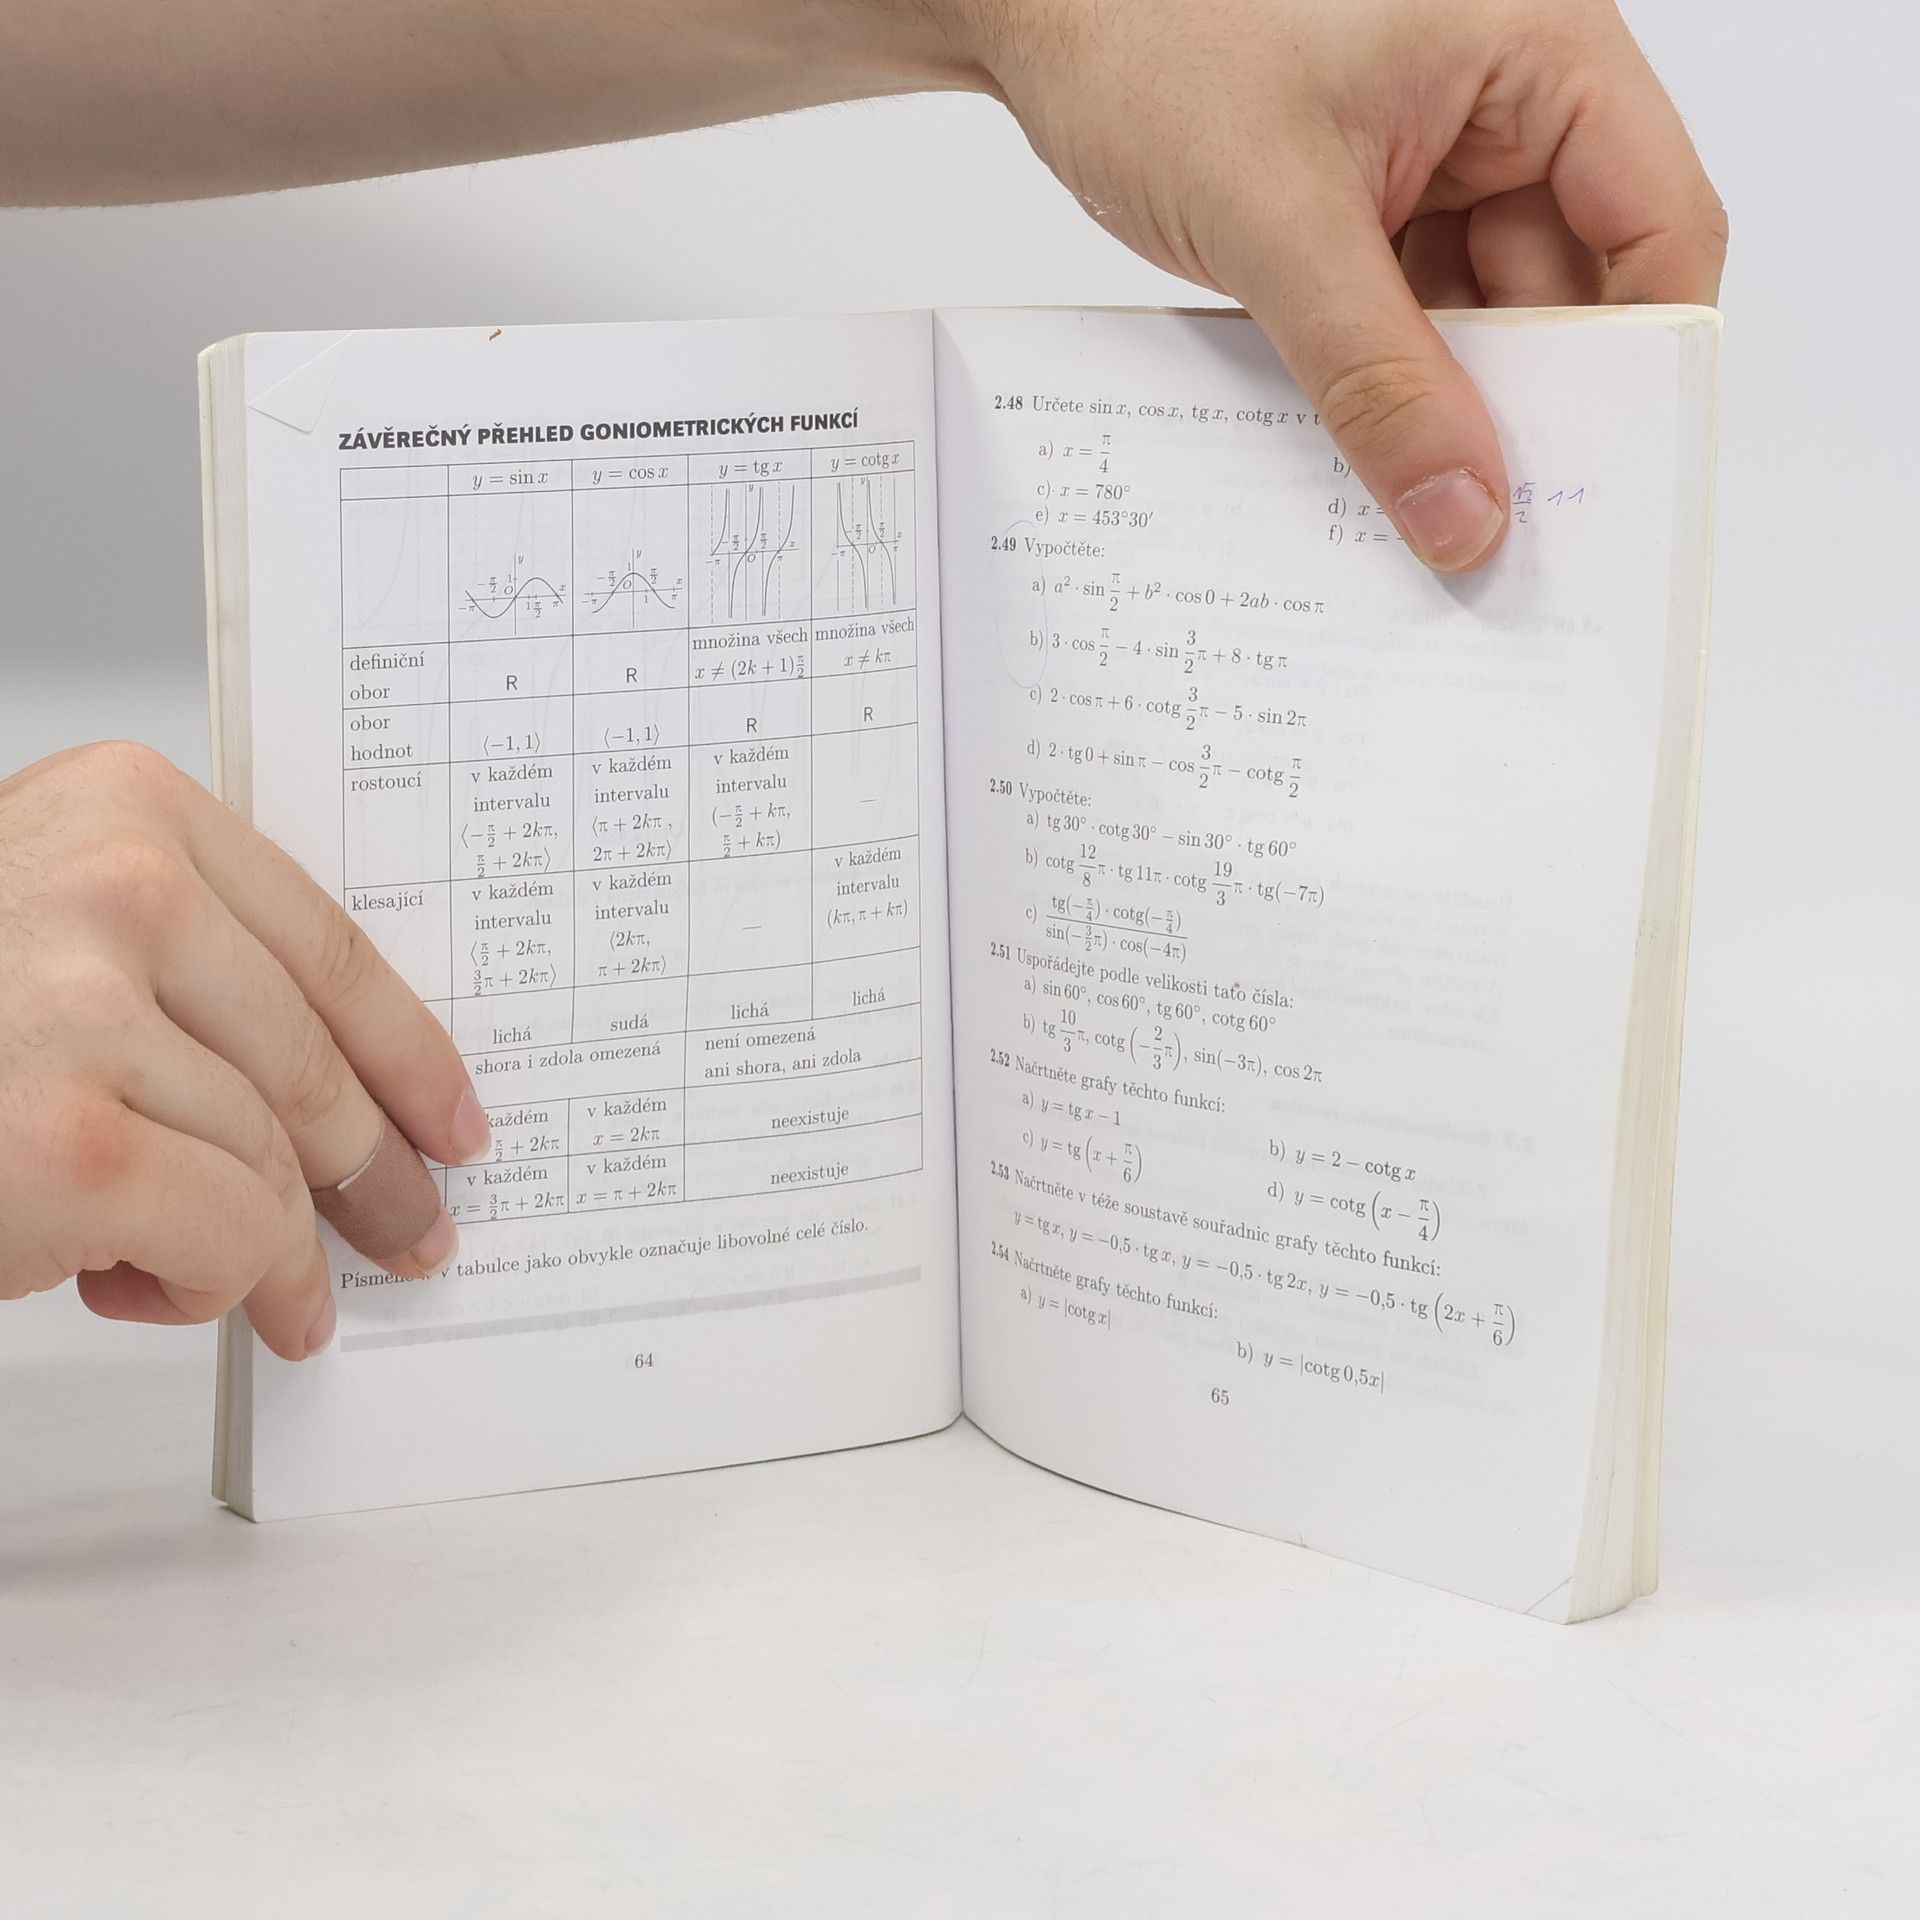 ZÁVĚREČNÝ PŘEHLED GONIOMETRICKÝCH FUNKCÍ
y = sin x y = cos x y = tg x y = cotg x
definiční obor R R množina všech x ≠ (2k + 1)π/2 množina všech x ≠ kπ
obor hodnot ⟨−1, 1⟩ ⟨−1, 1⟩ R R
rostoucí v každém intervalu ⟨−π/2 + 2kπ, π/2 + 2kπ⟩ v každém intervalu ⟨π + 2kπ, 2π + 2kπ⟩ v každém intervalu (−π/2 + kπ, π/2 + kπ) —
klesající v každém intervalu ⟨π/2 + 2kπ, 3/2π + 2kπ⟩ v každém intervalu ⟨2kπ, π + 2kπ⟩ — v každém intervalu (kπ, π + kπ)
lichá sudá lichá lichá
shora i zdola omezená není omezená ani shora, ani zdola
každém π/2 + 2kπ v každém x = 2kπ neexistuje
v každém x = 3/2π + 2kπ v každém x = π + 2kπ neexistuje
v tabulce jako obvykle označuje libovolné celé číslo.
64
2.48 Určete sin x, cos x, tg x, cotg x v
a) x = π/4 b)
c) x = 780° d) x =
e) x = 453°30′ f) x = −
√2/2 1 1
2.49 Vypočtěte:
a) a² · sin π/2 + b² · cos 0 + 2ab · cos π
b) 3 · cos π/2 − 4 · sin 3/2π + 8 · tg π
c) 2 · cos π + 6 · cotg 3/2π − 5 · sin 2π
d) 2 · tg 0 + sin π − cos 3/2π − cotg π/2
2.50 Vypočtěte:
a) tg 30° · cotg 30° − sin 30° · tg 60°
b) cotg 12/8π · tg 11π · cotg 19/3π · tg(−7π)
c) tg(−π/4) · cotg(−π/4) / sin(−3/2π) · cos(−4π)
2.51 Uspořádejte podle velikosti tato čísla:
a) sin 60°, cos 60°, tg 60°, cotg 60°
b) tg 10/3π, cotg (−2/3π), sin(−3π), cos 2π
2.52 Načrtněte grafy těchto funkcí:
a) y = tg x − 1 b) y = 2 − cotg x
c) y = tg (x + π/6) d) y = cotg (x − π/4)
2.53 Načrtněte v téže soustavě souřadnic grafy těchto funkcí:
y = tg x, y = −0,5 · tg x, y = −0,5 · tg 2x, y = −0,5 · tg (2x + π/6)
2.54 Načrtněte grafy těchto funkcí:
a) y = |cotg x| b) y = |cotg 0,5x|
65